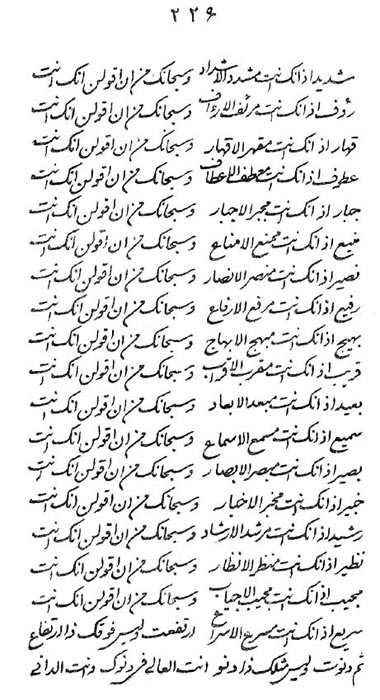 ٢٢۶
شديد اذ انك انت مشدد الاشداد وسبحانك من ان اقولن انك انت
رؤف اذ انك انت مرئف الارءاف وسبحانك من ان اقولن انك انت
قهار اذ انك انت مقهر الاقهار وسبحانك من ان اقولن انك انت
عطوف اذ انك انت معطف الاعطاف وسبحانك من ان اقولن انك انت
جبار اذ انك انت مجبر الاجبار وسبحانك من ان اقولن انك انت
منيع اذ انك انت ممنع الامناع وسبحانك من ان اقولن انك انت
نصير اذ انك انت منصر الانصار وسبحانك من ان اقولن انك انت
رفيع اذ انك انت مرفع الارفاع وسبحانك من ان اقولن انك انت
بهيج اذ انك انت مبهج الابهاج وسبحانك من ان اقولن انك انت
قريب اذ انك انت مقرب الاقراب وسبحانك من ان اقولن انك انت
بعيد اذ انك انت مبعد الابعاد وسبحانك من ان اقولن انك انت
سميع اذ انك انت مسمع الاسماع وسبحانك من ان اقولن انك انت
بصير اذ انك انت مبصر الابصار وسبحانك من ان اقولن انك انت
خبير اذ انك انت مخبر الاخبار وسبحانك من ان اقولن انك انت
رشيد اذ انك انت مرشد الارشاد وسبحانك من ان اقولن انك انت
نظير اذ انك انت منظر الانظار وسبحانك من ان اقولن انك انت
مجيب اذ انك انت مجيب الاجياب وسبحانك من ان اقولن انك انت
سريع اذ انك انت مسرع الاسراع ارتفعت وليس فوقك ذا ارتفاع
ثم دنوت وليس مثلك ذا دنو انت العالى فى دنوك وانت الدانى